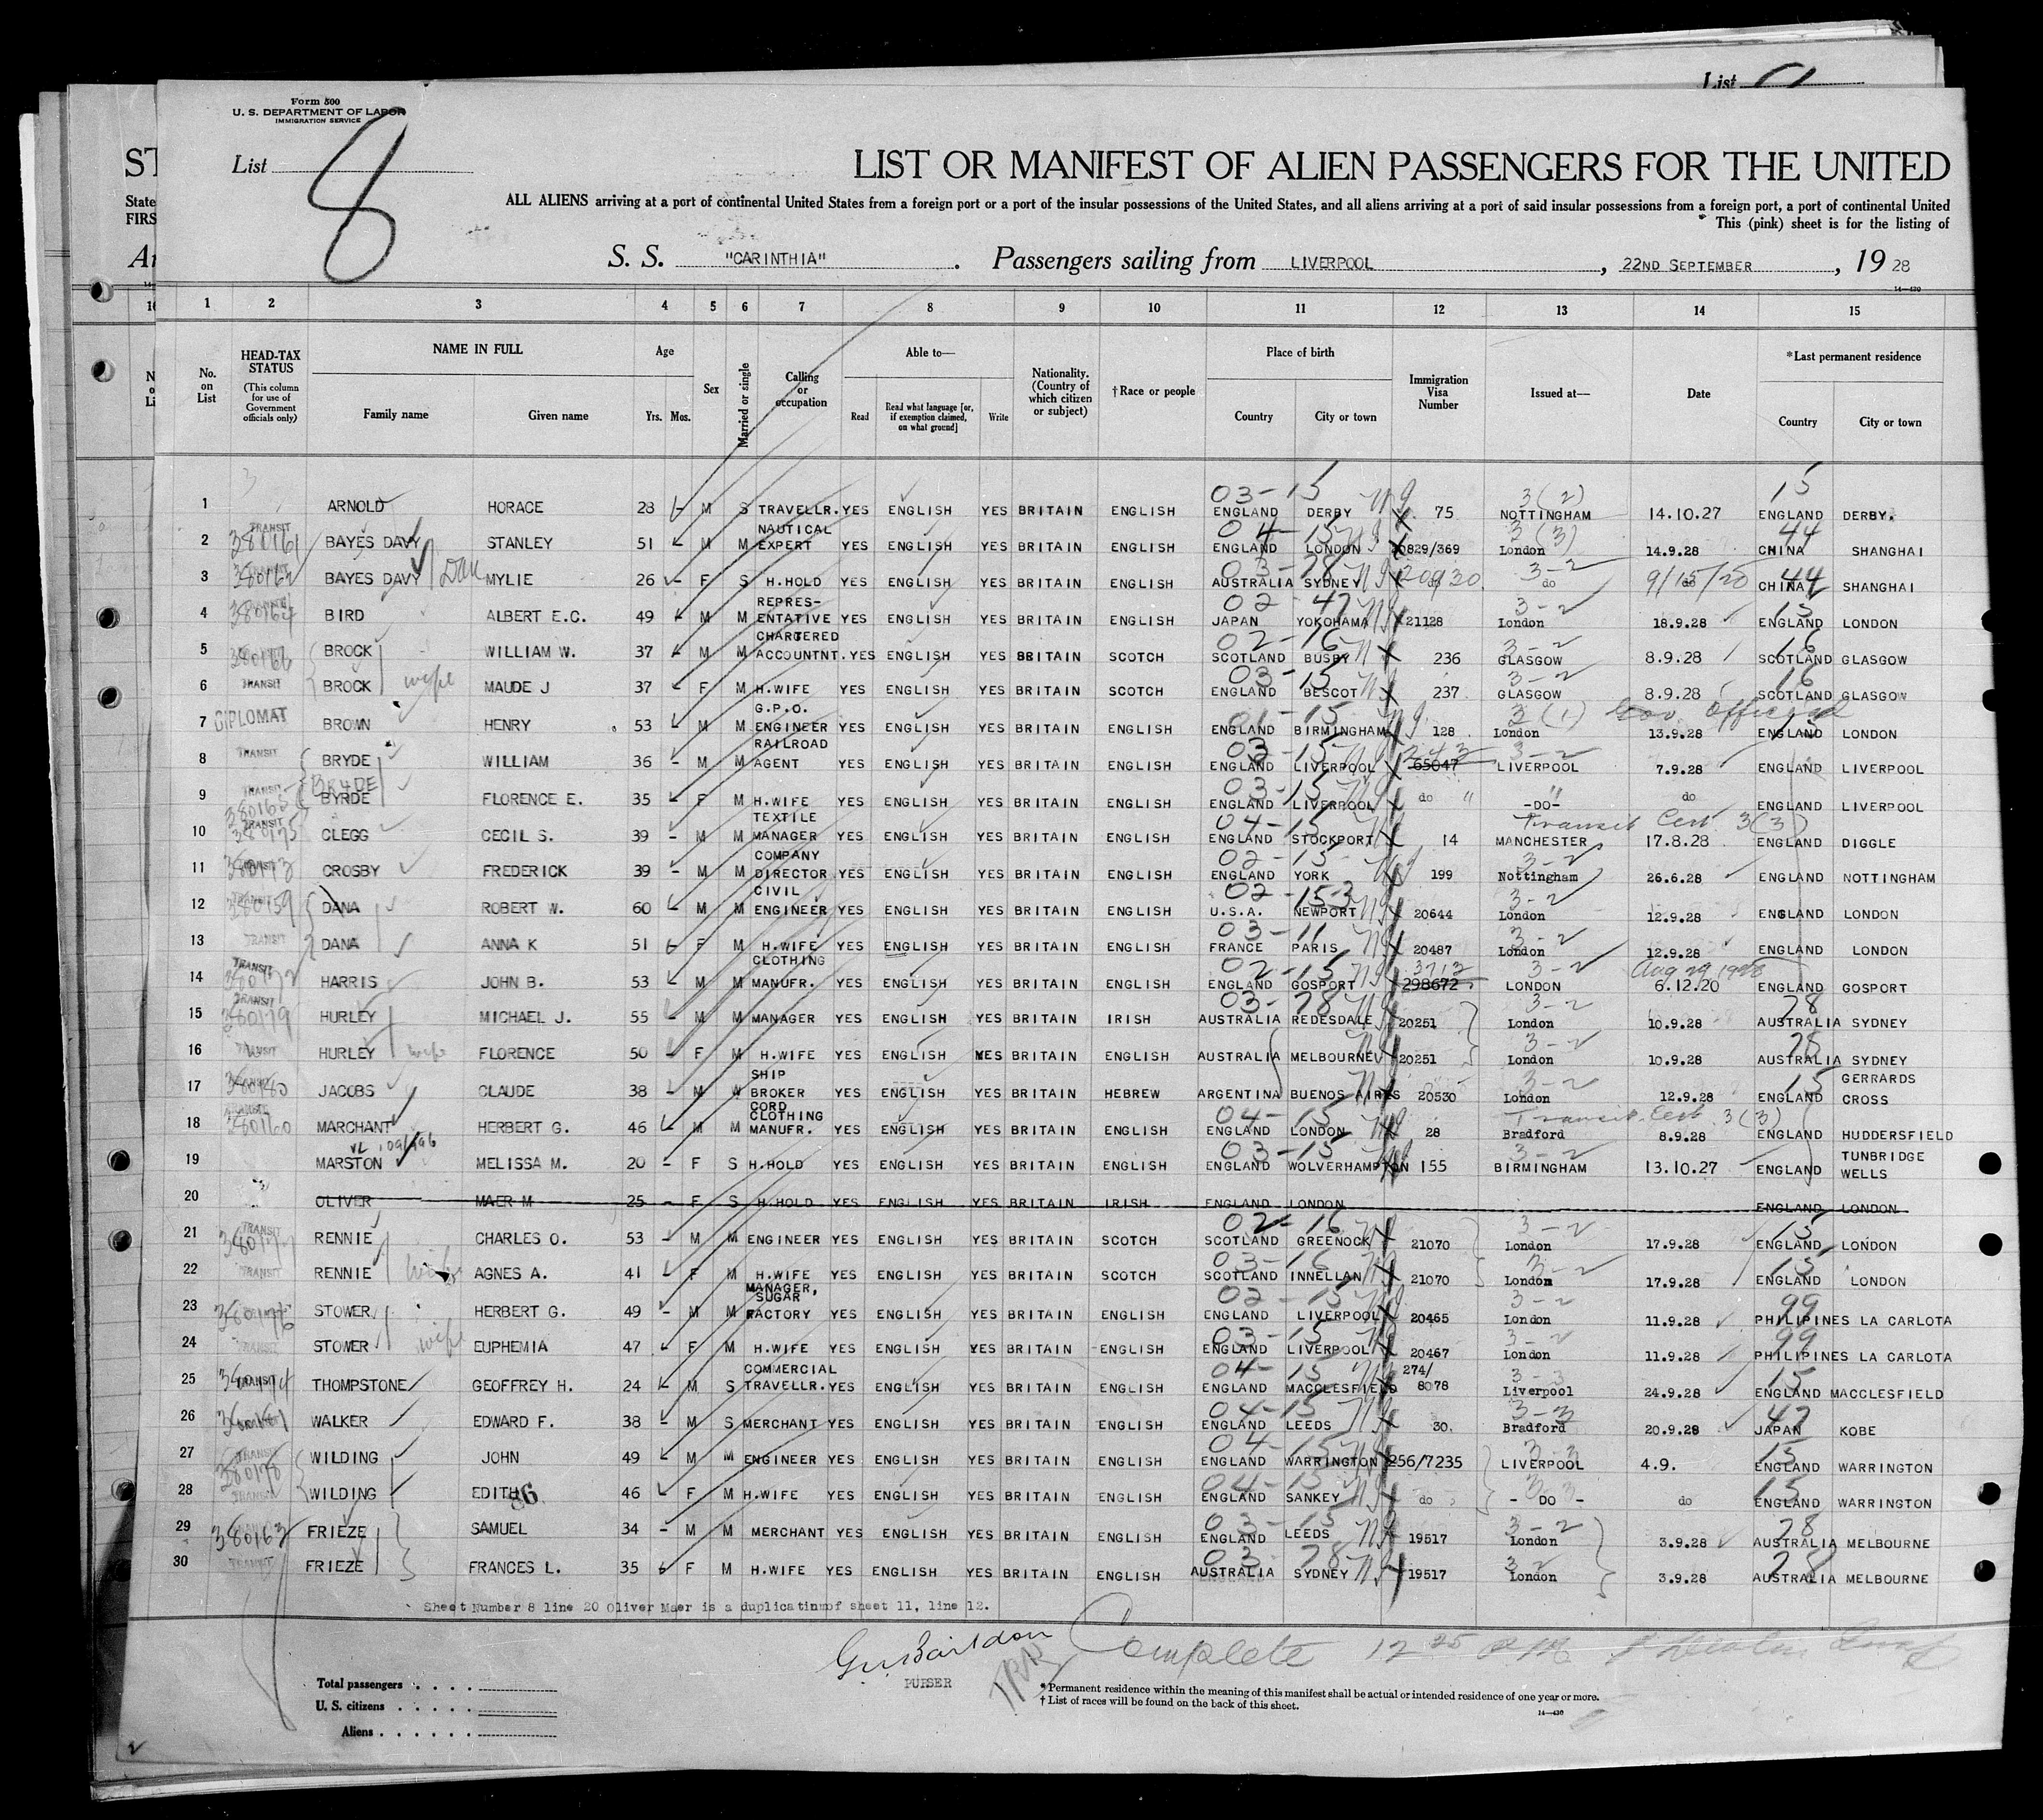 List
Form 500
U. S. DEPARTMENT OF LABOR
IMMIGRATION SERVICE
List 8
LIST OR MANIFEST OF ALIEN PASSENGERS FOR THE UNITED
ALL ALIENS arriving at a port of continental United States from a foreign port or a port of the insular possessions of the United States, and all aliens arriving at a port of said insular possessions from a foreign port, a port of continental United
This (pink) sheet is for the listing of
S. S. "CARINTHIA". Passengers sailing from LIVERPOOL, 22ND SEPTEMBER, 19 28
1 2 3 4 5 6 7 8 9 10 11 12 13 14 15
No. on List
HEAD-TAX STATUS (This column for use of Government officials only)
NAME IN FULL Family name Given name
Age Yrs. Mos.
Sex
Married or single
Calling or occupation
Able to— Read Read what language [or, if exemption claimed, on what ground] Write
Nationality. (Country of which citizen or subject)
† Race or people
Place of birth Country City or town
Immigration Visa Number
Issued at—
Date
* Last permanent residence Country City or town
1 ARNOLD HORACE 28 M S TRAVELLR. YES ENGLISH YES BRITAIN ENGLISH ENGLAND DERBY 75 NOTTINGHAM 14.10.27 ENGLAND DERBY.
2 TRANSIT 380161 BAYES DAVY STANLEY 51 M M NAUTICAL EXPERT YES ENGLISH YES BRITAIN ENGLISH ENGLAND LONDON 20829/369 London 14.9.28 CHINA SHANGHAI
3 BAYES DAVY MYLIE 26 - F S H.HOLD YES ENGLISH YES BRITAIN ENGLISH AUSTRALIA SYDNEY 20930 do CHINA SHANGHAI
4 BIRD ALBERT E.C. 49 M M REPRES-ENTATIVE YES ENGLISH YES BRITAIN ENGLISH JAPAN YOKOHAMA 21128 London 18.9.28 ENGLAND LONDON
5 380166 BROCK WILLIAM W. 37 - M M CHARTERED ACCOUNTNT. YES ENGLISH YES BRITAIN SCOTCH SCOTLAND BUSBY 236 GLASGOW 8.9.28 SCOTLAND GLASGOW
6 TRANSIT BROCK wife MAUDE J 37 - F M H.WIFE YES ENGLISH YES BRITAIN SCOTCH ENGLAND BESCOT 237 GLASGOW 8.9.28 SCOTLAND GLASGOW
7 DIPLOMAT BROWN HENRY 53 M M G.P.O. ENGINEER YES ENGLISH YES BRITAIN ENGLISH ENGLAND BIRMINGHAM 128 London Gov. Official 13.9.28 ENGLAND LONDON
8 TRANSIT BRYDE WILLIAM 36 - M M RAILROAD AGENT YES ENGLISH YES BRITAIN ENGLISH ENGLAND LIVERPOOL 65047 LIVERPOOL 7.9.28 ENGLAND LIVERPOOL
9 TRANSIT BRYDE BYRDE FLORENCE E. 35 F M H.WIFE YES ENGLISH YES BRITAIN ENGLISH ENGLAND LIVERPOOL do -DO- do ENGLAND LIVERPOOL
10 TRANSIT 380175 CLEGG CECIL S. 39 - M M TEXTILE MANAGER YES ENGLISH YES BRITAIN ENGLISH ENGLAND STOCKPORT 14 Transit Cert. 3(3) MANCHESTER 17.8.28 ENGLAND DIGGLE
11 CROSBY FREDERICK 39 - M M COMPANY DIRECTOR YES ENGLISH YES BRITAIN ENGLISH ENGLAND YORK 199 Nottingham 26.6.28 ENGLAND NOTTINGHAM
12 DANA ROBERT W. 60 M M CIVIL ENGINEER YES ENGLISH YES BRITAIN ENGLISH U.S.A. NEWPORT 20644 London 12.9.28 ENGLAND LONDON
13 TRANSIT DANA ANNA K 51 F M H.WIFE YES ENGLISH YES BRITAIN ENGLISH FRANCE PARIS 20487 London 12.9.28 ENGLAND LONDON
14 TRANSIT 380172 HARRIS JOHN B. 53 M M CLOTHING MANUFR. YES ENGLISH YES BRITAIN ENGLISH ENGLAND GOSPORT 3713 298672 LONDON Aug 29 1928 6.12.20 ENGLAND GOSPORT
15 TRANSIT 380179 HURLEY MICHAEL J. 55 - M M MANAGER YES ENGLISH YES BRITAIN IRISH AUSTRALIA REDESDALE 20251 London 10.9.28 AUSTRALIA SYDNEY
16 TRANSIT HURLEY wife FLORENCE 50 - F M H.WIFE YES ENGLISH YES BRITAIN ENGLISH AUSTRALIA MELBOURNE 20251 London 10.9.28 AUSTRALIA SYDNEY
17 380180 JACOBS CLAUDE 38 - M W SHIP BROKER YES ENGLISH YES BRITAIN HEBREW ARGENTINA BUENOS AIRES 20530 London 12.9.28 ENGLAND GERRARDS CROSS
18 380160 MARCHANT HERBERT G. 46 M M CORD CLOTHING MANUFR. YES ENGLISH YES BRITAIN ENGLISH ENGLAND LONDON 28 Transit Cert. 3(3) Bradford 8.9.28 ENGLAND HUDDERSFIELD
19 MARSTON MELISSA M. 20 - F S H.HOLD YES ENGLISH YES BRITAIN ENGLISH ENGLAND WOLVERHAMPTON 155 BIRMINGHAM 13.10.27 ENGLAND TUNBRIDGE WELLS
20 OLIVER MAER M 25 - F S H.HOLD YES ENGLISH YES BRITAIN IRISH ENGLAND LONDON ENGLAND LONDON
21 TRANSIT RENNIE CHARLES O. 53 M M ENGINEER YES ENGLISH YES BRITAIN SCOTCH SCOTLAND GREENOCK 21070 London 17.9.28 ENGLAND LONDON
22 TRANSIT RENNIE wife AGNES A. 41 F M H.WIFE YES ENGLISH YES BRITAIN SCOTCH SCOTLAND INNELLAN 21070 London 17.9.28 ENGLAND LONDON
23 380176 STOWER HERBERT G. 49 - M M MANAGER, SUGAR FACTORY YES ENGLISH YES BRITAIN ENGLISH ENGLAND LIVERPOOL 20465 London 11.9.28 PHILIPINES LA CARLOTA
24 STOWER wife EUPHEMIA 47 F M H.WIFE YES ENGLISH YES BRITAIN ENGLISH ENGLAND LIVERPOOL 20467 London 11.9.28 PHILIPINES LA CARLOTA
25 TRANSIT THOMPSTONE GEOFFREY H. 24 M S COMMERCIAL TRAVELLR. YES ENGLISH YES BRITAIN ENGLISH ENGLAND MACCLESFIELD 274/8078 Liverpool 24.9.28 ENGLAND MACCLESFIELD
26 WALKER EDWARD F. 38 - M S MERCHANT YES ENGLISH YES BRITAIN ENGLISH ENGLAND LEEDS 30. Bradford 20.9.28 JAPAN KOBE
27 TRANSIT 380178 WILDING JOHN 49 M M ENGINEER YES ENGLISH YES BRITAIN ENGLISH ENGLAND WARRINGTON 256/7235 LIVERPOOL 4.9. ENGLAND WARRINGTON
28 WILDING EDITH 46 F M H.WIFE YES ENGLISH YES BRITAIN ENGLISH ENGLAND SANKEY do - DO - do ENGLAND WARRINGTON
29 380163 FRIEZE SAMUEL 34 - M M MERCHANT YES ENGLISH YES BRITAIN ENGLISH ENGLAND LEEDS 19517 London 3.9.28 AUSTRALIA MELBOURNE
30 TRANSIT FRIEZE FRANCES L. 35 F M H.WIFE YES ENGLISH YES BRITAIN ENGLISH AUSTRALIA SYDNEY 19517 London 3.9.28 AUSTRALIA MELBOURNE
Sheet Number 8 line 20 Oliver Maer is a duplicatinof sheet 11, line 12.
Complete 12 25
PURSER
Total passengers
U. S. citizens
Aliens
* Permanent residence within the meaning of this manifest shall be actual or intended residence of one year or more.
† List of races will be found on the back of this sheet.
14—430